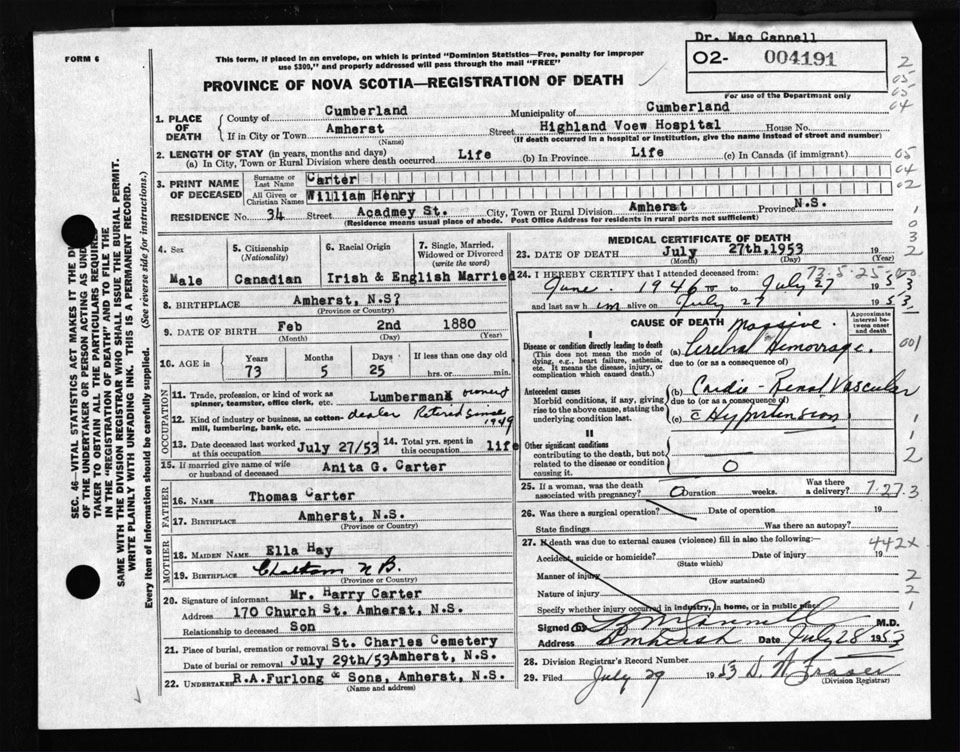 Dr. Mac Cannell
FORM 6
This form, if placed in an envelope, on which is printed "Dominion Statistics—Free, penalty for improper
use $300," and properly addressed will pass through the mail "FREE"
02- 004191
For use of the Department only
PROVINCE OF NOVA SCOTIA—REGISTRATION OF DEATH
2
05
05
04
1. PLACE OF DEATH
County of Cumberland Municipality of Cumberland
If in City or Town Amherst Street Highland Voew Hospital House No.
(Name) (If death occurred in a hospital or institution, give the name instead of street and number)
2. LENGTH OF STAY (in years, months and days)
(a) In City, Town or Rural Division where death occurred Life (b) In Province Life (c) In Canada (if immigrant)
05
04
02
3. PRINT NAME OF DECEASED
Surname or Last Name Carter
All Given or Christian Names William Henry
RESIDENCE No. 34 Street Acadmey St. City, Town or Rural Division Amherst Province N.S.
(Residence means usual place of abode. Post Office Address for residents in rural parts not sufficient)
1
0
3
2
4. Sex
Male
5. Citizenship
(Nationality)
Canadian
6. Racial Origin
Irish & English
7. Single, Married, Widowed or Divorced
(write the word)
Married
8. BIRTHPLACE Amherst, N.S?
(Province or Country)
9. DATE OF BIRTH Feb 2nd 1880
(Month) (Day) (Year)
10. AGE in
Years 73
Months 5
Days 25
If less than one day old
hrs. or min.
OCCUPATION
11. Trade, profession, or kind of work as
spinner, teamster, office clerk, etc. Lumberman owner
12. Kind of industry or business, as cotton-
mill, lumbering, bank, etc. dealer Retired since 1949
13. Date deceased last worked
at this occupation July 27/53
14. Total yrs. spent in
this occupation life
15. If married give name of wife
or husband of deceased Anita G. Carter
FATHER
16. NAME Thomas Carter
17. BIRTHPLACE Amherst, N.S.
(Province or Country)
MOTHER
18. MAIDEN NAME Ella Hay
19. BIRTHPLACE Chatham N B.
(Province or Country)
20. Signature of informant Mr. Harry Carter
Address 170 Church St. Amherst, N.S.
Relationship to deceased Son
21. Place of burial, cremation or removal St. Charles Cemetery
Date of burial or removal July 29th/53 Amherst, N.S.
22. UNDERTAKER R.A.Furlong & Sons, Amherst, N.S.
(Name and address)
MEDICAL CERTIFICATE OF DEATH
23. DATE OF DEATH July 27th,1953 19
(Month) (Day) (Year)
73-5-25-000
24. I HEREBY CERTIFY that I attended deceased from:
June 1946 to July 27 1953
and last saw him alive on July 27 1953
Approximate interval between onset and death
CAUSE OF DEATH
I
Disease or condition directly leading to death
(This does not mean the mode of
dying, e.g., heart failure, asthenia,
etc. It means the disease, injury, or
complication which caused death.)
(a) Massive Cerebral Hemorrage.
due to (or as a consequence of)
001
Antecedent causes
Morbid conditions, if any, giving
rise to the above cause, stating the
underlying condition last.
(b) Cardio-Renal Vascular
due to (or as a consequence of)
(c) c̄ Hypertension
1
1
2
II
Other significant conditions
contributing to the death, but not
related to the disease or condition
causing it.
0
25. If a woman, was the death
associated with pregnancy? 0 Duration weeks. Was there
a delivery?
7-27.3
26. Was there a surgical operation? Date of operation 19
State findings Was there an autopsy?
27. If death was due to external causes (violence) fill in also the following:
442x
Accident, suicide or homicide? Date of injury 19
(State which)
Manner of injury
(How sustained)
Nature of injury
2
2
1
Specify whether injury occurred in industry, in home, or in public place
Signed M.D.
Address Amherst Date July 28 1953
28. Division Registrar's Record Number
29. Filed July 29 1953 D. W. Fraser
(Division Registrar)
SEC. 46—VITAL STATISTICS ACT MAKES IT THE
OF THE UNDERTAKER OR PERSON ACTING AS
TAKER TO OBTAIN ALL THE PARTICULARS
IN THE "REGISTRATION OF DEATH" AND TO FILE THE
SAME WITH THE DIVISION REGISTRAR WHO SHALL ISSUE THE BURIAL PERMIT.
WRITE PLAINLY WITH UNFADING INK. THIS IS A PERMANENT RECORD.
Every item of information should be carefully supplied. (See reverse side for instructions.)